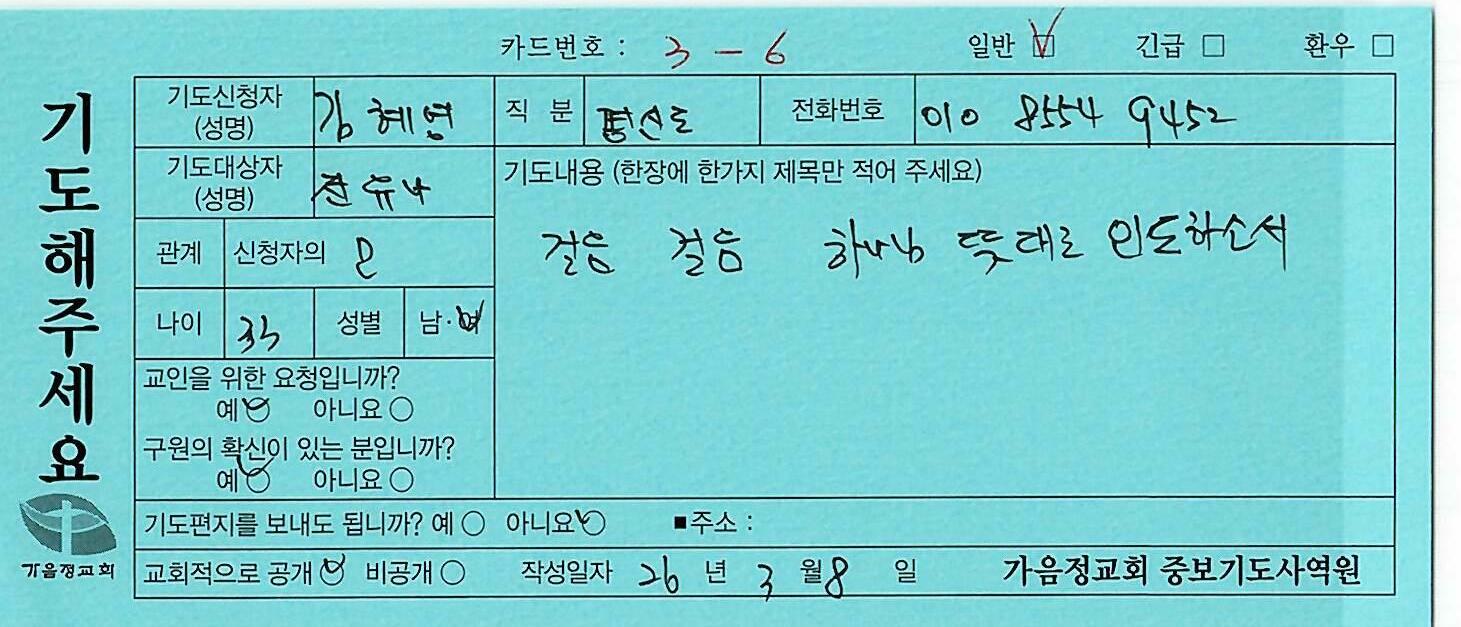 카드번호 : 3 - 6 일반 ☑ 긴급 □ 환우 □
기도해주세요
기도신청자 (성명) 김혜영 직 분 평신도 전화번호 010 8554 9452
기도대상자 (성명) 유나
기도내용 (한장에 한가지 제목만 적어 주세요)
걸음 걸음 하나님 뜻대로 인도하소서
관계 신청자의
나이 33 성별 남·여
교인을 위한 요청입니까?
예 ○ 아니요 ○
구원의 확신이 있는 분입니까?
예 ○ 아니요 ○
기도편지를 보내도 됩니까? 예 ○ 아니요 ○ ■주소 :
교회적으로 공개 ○ 비공개 ○ 작성일자 26 년 3 월 8 일 가음정교회 중보기도사역원
가음정교회